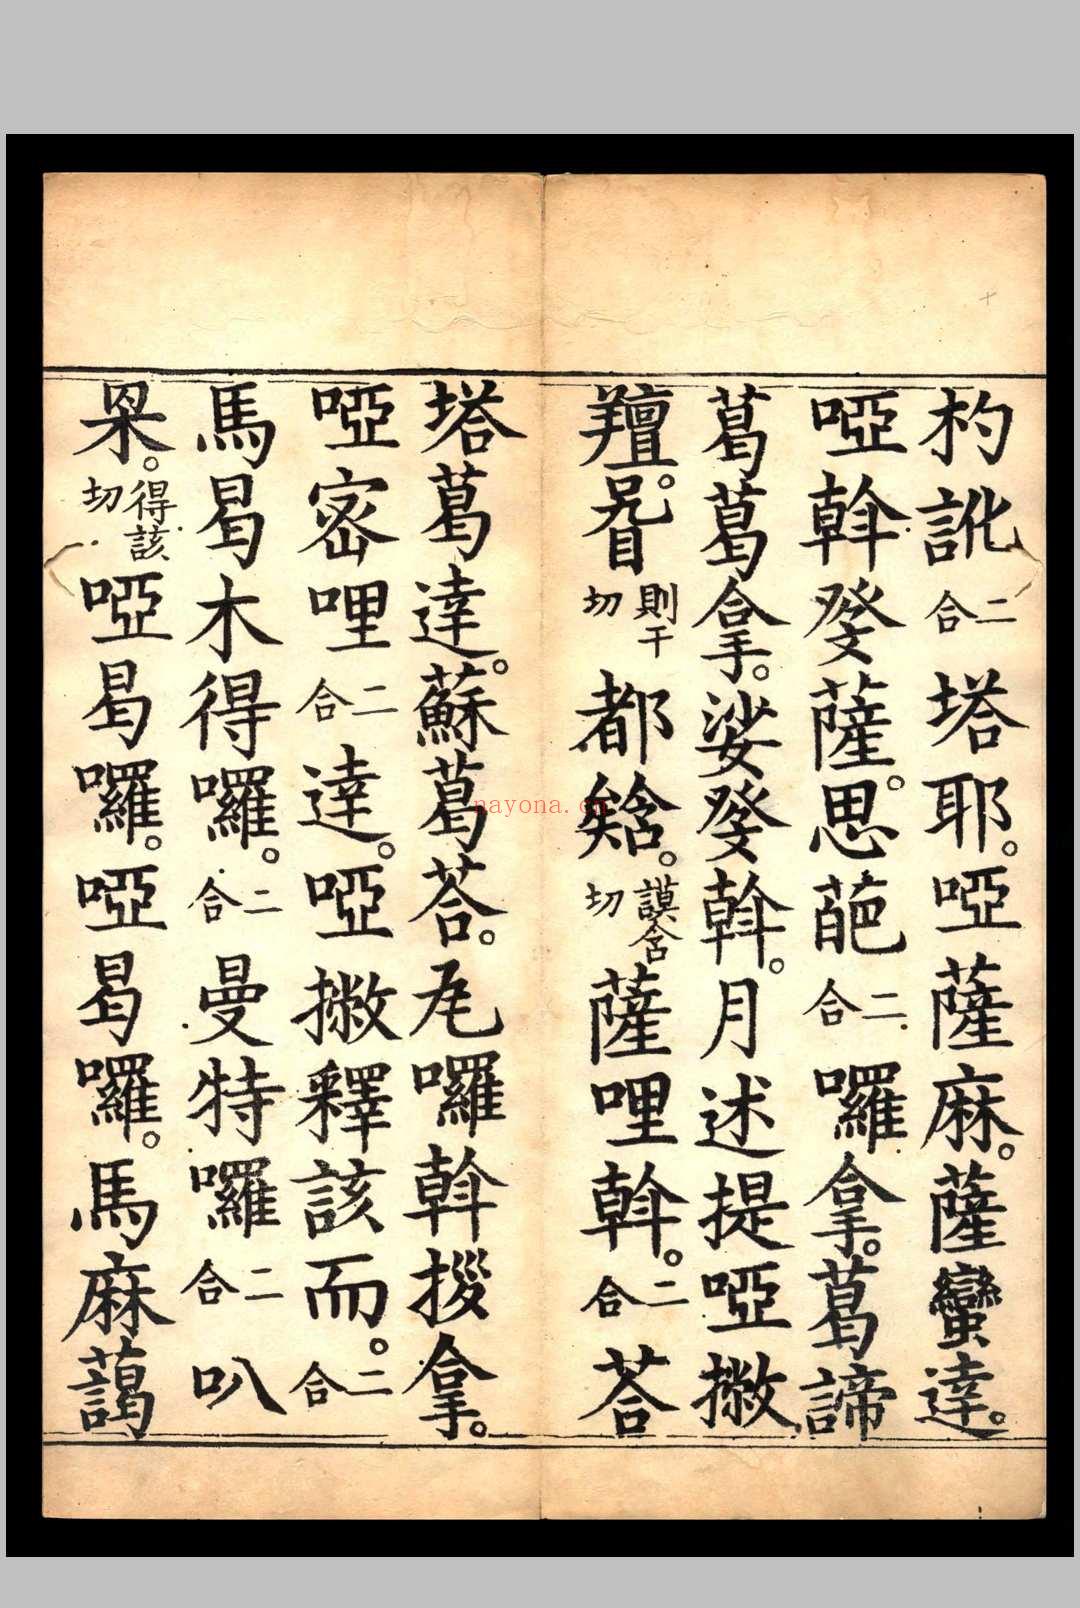 杓訛二合塔耶。啞薩麻。薩蠻達。
啞斡癹薩。思葩二合囉拿。葛諦
葛葛拿。娑癹斡。月述提啞撇
羶。則干切都𩜾。謨含切薩哩斡。二合荅
塔葛達。蘇葛荅。㞑囉斡捘拿。
啞宻哩二合達。啞撇釋該而。二合
馬曷木得囉。二合曼特囉二合叭
杲。得該切啞曷囉。啞曷囉。馬麻藹
nayona.cn